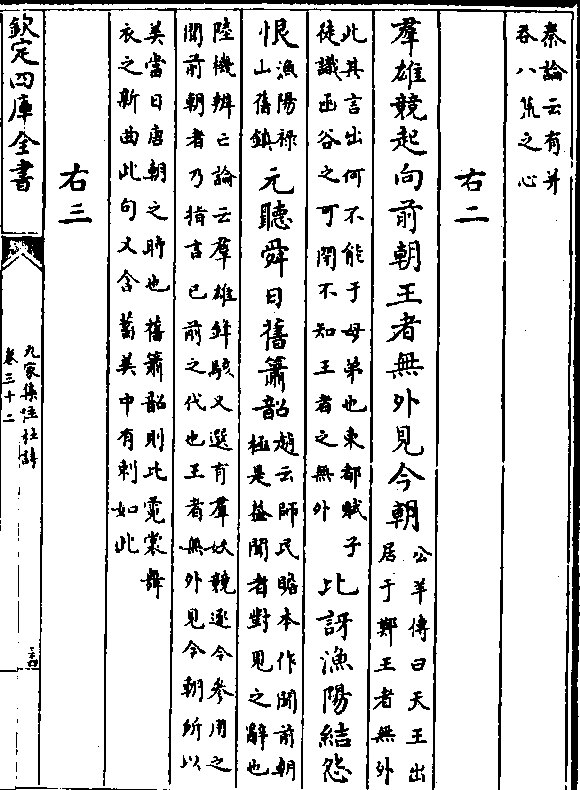 秦論云有并
吞八荒之心
右二
羣雄競起向前朝王者無外見今朝
公羊傳曰天王出
居于鄭王者無外
此其言出何不能于母弟也東都賦子
徒識函谷之可關不知王者之無外
比訝漁陽結怨
恨
漁陽祿
山舊鎮
元聽舜日舊簫韶
趙云師民瞻本作聞前朝
極是蓋聞者對見之辭也
陸機辨亡論云羣雄鋒駭又選有羣妖競逐今參用之
聞前朝者乃指言已前之代也王者無外見今朝所以
美當日唐朝之時也舊簫韶則比霓裳舞
衣之斯曲此句又含蓄美中有刺如此
右三
欽定四庫全書
九家集注杜詩
卷三十二